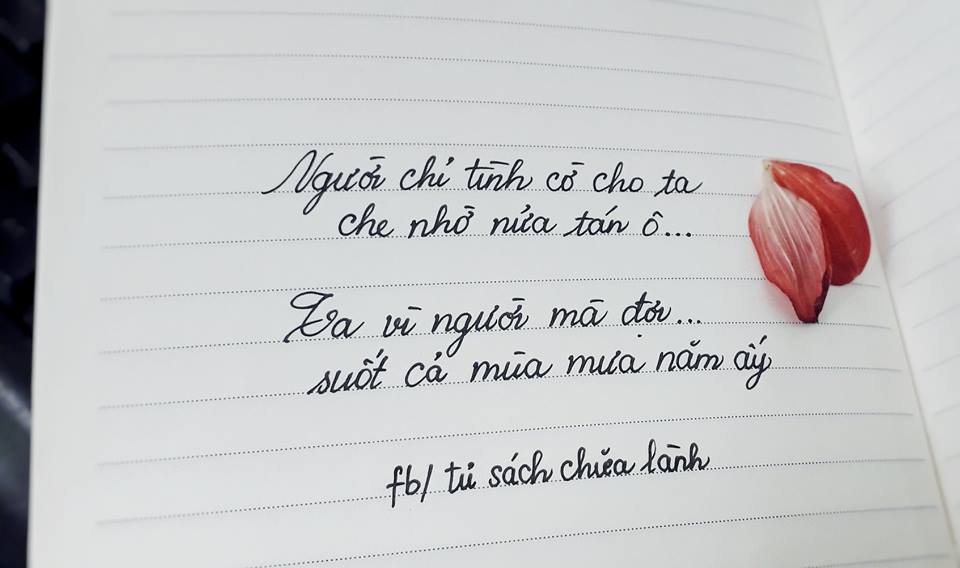 Người chỉ tình cờ cho ta
che nhờ nửa tán ô...
Ta vì người mà đợi...
suốt cả mùa mưa năm ấy
fb/ tủ sách chữa lành